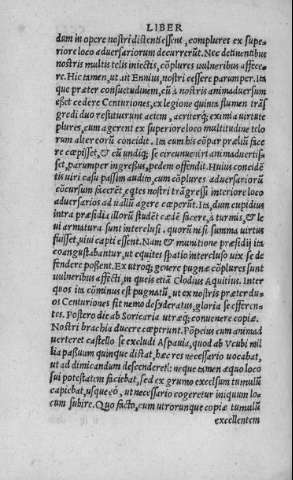 LIBER
dum in opere nostri distenti essent, complures ex supe
riore loco adversariorum decurrerūt. Nec detinentibus
nostris multis telis iniectis, cōplures vulneribus affece
re. Hic tamen, ut ait Ennius, nostri cessere parumper. Ita
que præter consuetudinem, cũ à nostris animadversum
esset cedere Centuriones, ex legione quinta flumen trās
gredi duo restituerunt aciem, acriterq; eximia virtute
plures, cum agerent ex superiore loco multitudine telo
rum alter eorū concidit. Ita cum his cōpar præliũ face
re cœpisset, & cũ undiq; se circumveniri animadvertis=
set, parumper ingressus, pedem offendit. Huius concidē
tis viri casu passim audito, cum cōplures adversariorũ
cōcursum facerēt, eqtes nostri trāgressi interiore loco
adversarios ad vallũ agere cœperũt. Ita dum cupidius
intra præsidia illorũ studēt cædē facere, à turmis, & le
vi armatura sunt interclusi. quorũ nisi summa virtus
fuisset, vivi capti essent. Nam & munitione præsidij ita
coangustabantur, ut equites spatio intercluso vix se de
fendere possent. Ex utroq; genere pugnæ cōplures sunt
vulneribus affecti, in queis etiā Clodius Aquitius. Inter
quos ita cōminus est pugnatũ, ut ex nostris præter du=
os Centuriones sit nemo desyderatus, gloria se efferen=
tes. Postero die ab Soricaria utræq; convenere copiæ.
Nostri brachia ducere cœperunt. Pōpeius cum animad
verteret castello se excludi Aspavia, quod ab Ucubi mil
lia passuum quinque distat, hæc res necessario vocabat,
ut ad dimicandum descenderet: neque tamen æquo loco
sui potestatem faciebat, sed ex grumo excelsum tumulũ
capiebat, usque eò, ut necessario cogeretur iniquum lo=
cum subire. Quo facto, cum utrorunque copiæ tumulũ
excellentem